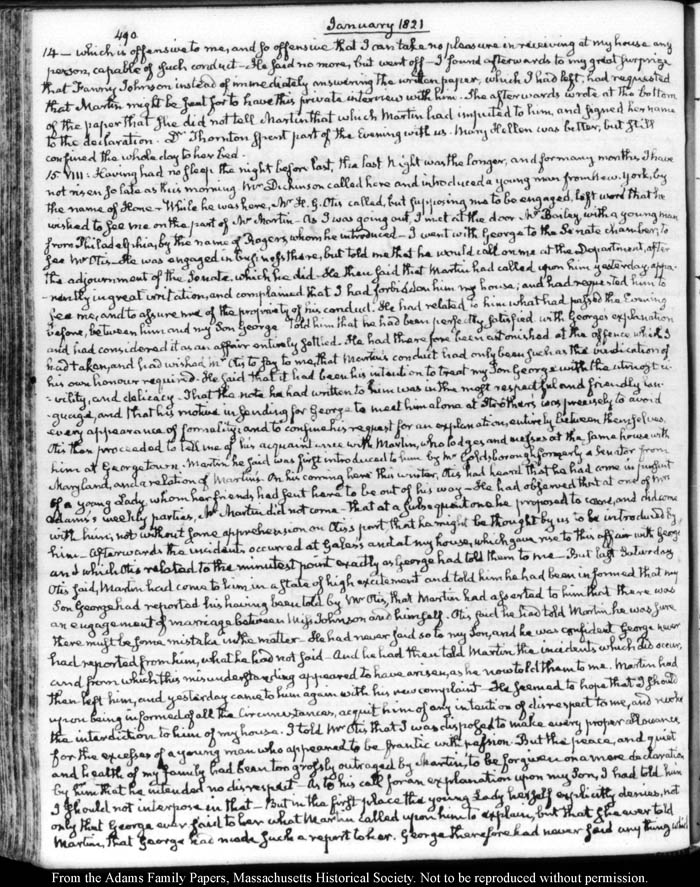 490.
January 1821
14 — which is offensive to me, and so offensive that I can take no pleasure in receiving at my house any
person, capable of such conduct — He said no more, but went off — I found afterwards to my great surprize
that Fanny Johnson instead of immediately answering the written paper, which I had left, had requested
that Martin might be sent for to have this private interview with him. She afterwards wrote at the bottom
of the paper that she did not tell Martin that which Martin had imputed to him, and signed her name
to the declaration. Dr. Thornton spent part of the Evening with us. Mary Hellen was better, but still
confined the whole day to her bed.
15. VIII: Having had no sleep the night before last, the last night was the longer, and for many months I have
not risen so late as this morning. Mr. Dickinson called here and introduced a young man from New-York, by
the name of Hone — While he was here, Mr. H. G. Otis called, but supposing me to be engaged, left word that he
wished to see me on the part of Mr. Martin — As I was going out, I met at the door Mr. Bailey with a young man
from Philadelphia, by the name of Rogers, whom he introduced — I went with George to the Senate chamber, to
see Mr. Otis. He was engaged in business there, but told me that he would call on me at the Department, after
the adjournment of the Senate. which he did. He then said that Martin had called upon him yesterday, appa-
-rently in great irritation, and complained that I had forbidden him my house; and had requested him to
see me, and to assure me of the propriety of his conduct. He had related to him what had passed the Evening
before, between him and my Son George. Told him that he had been perfectly satisfied with George's explanation
and had considered it as an affair entirely settled. He had therefore been astonished at the offence which I
had taken, and had wished Mr. Otis to say to me, that Martin's conduct had only been such as the vindication of
his own honour required. He said that it had been his intention to treat my Son George with the utmost ci-
-vility, and delicacy — That the note he had written to him was in the most respectful and friendly lan-
guage, and that his motive in sending for George to meet him alone at Strothers was precisely to avoid
every appearance of formality; and to confine his request for an explanation, entirely between themselves.
Otis then proceeded to tell me of his acquaintance with Martin, who lodges and messes at the same house with
him at Georgetown. Martin he said was first introduced to him by Mr. Goldsborough formerly a Senator from
Maryland, and a relation of Martin's. On his coming here this winter, Otis had heard that he had come in pursuit
of a young Lady, whom her friends had sent here to be out of his way — He had observed that at one of Mrs.
Adams's weekly parties, Mr. Martin did not come — that at a subsequent one he proposed to come, and did come
with him; not without some apprehension on Otis's part that he might be thought by us to be introduced by
him — Afterwards the incidents occurred at Gales's and at my house, which gave rise to this affair with George
and which Otis related to the minutest point exactly as George had told them to me — But last Saturday
Otis said, Martin had come to him in a state of high excitement and told him he had been informed that my
Son George had reported his having been told by Mr. Otis, that Martin had asserted to him that there was
an engagement of marriage between Miss Johnson and himself. Otis said he had told Martin he was sure
there must be some mistake in the matter — He had never said so to my Son, and he was confident George never
had reported from him, what he had not said — And he had then told Martin the incidents which did occur,
and from which this misunderstanding appeared to have arisen, as he now told them to me. Martin had
then left him, and yesterday came to him again with his new complaint — He seemed to hope that I should
upon being informed of all the circumstances, acquit him of any intention of disrespect to me, and revoke
the interdiction to him of my house. I told Mr. Otis that I was disposed to make every proper allowance
for the excesses of a young man who appeared to be frantic with passion. But the peace, and quiet
and health of my family had been too grossly outraged by Martin, to be forgiven on a mere declaration
by him that he intended no disrespect — As to his call for an explanation upon my Son, I had told him
I should not interpose in that — But in the first place the young Lady herself explicitly denies, not
only that George ever said to her what Martin called upon him to explain, but that she ever told
Martin, that George had made such a report to her. George therefore had never said any thing which
From the Adams Family Papers, Massachusetts Historical Society. Not to be reproduced without permission.